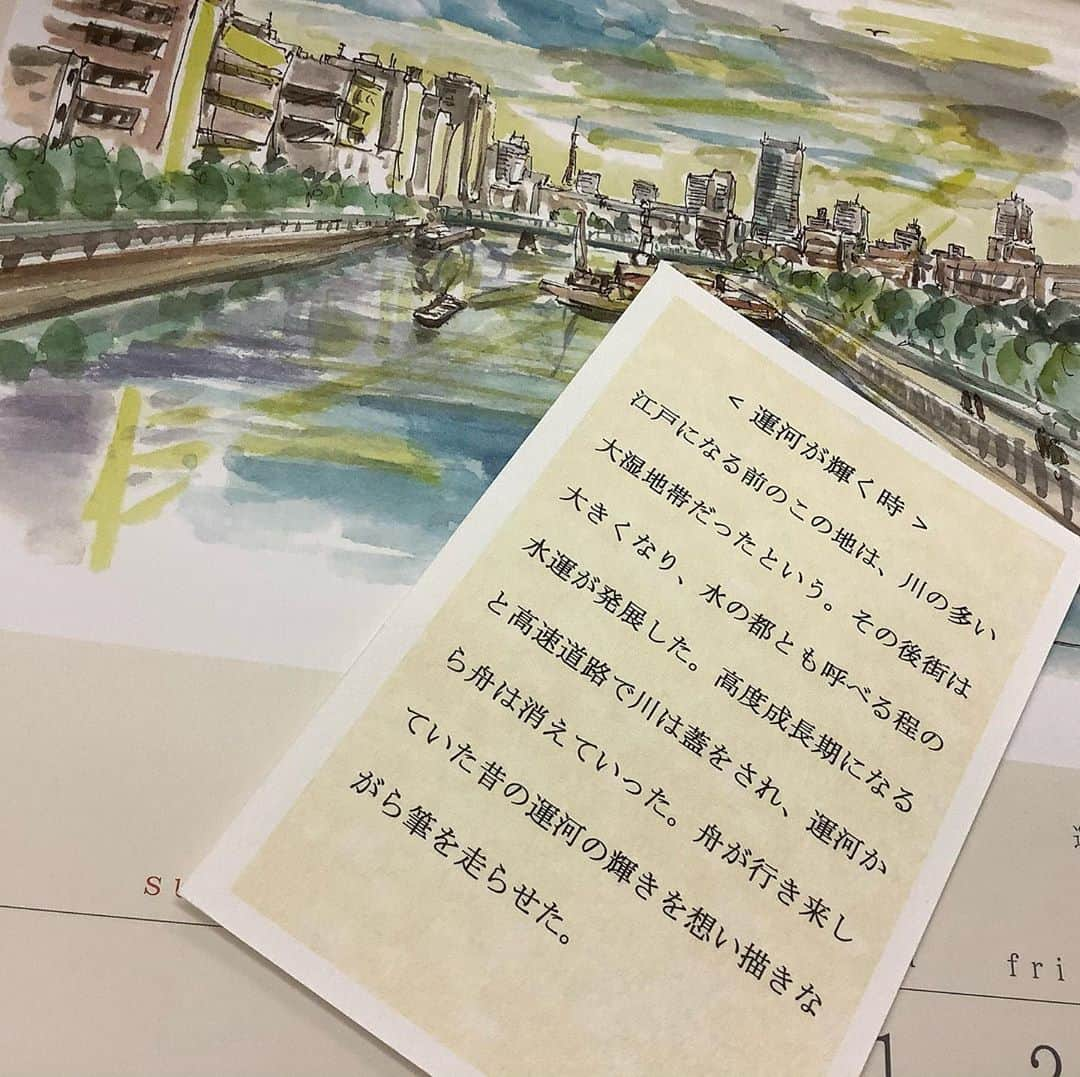 < 運河が輝く時 >
江戸になる前のこの地は、川の多い
大湿地帯だったという。その後街は
大きくなり、水の都とも呼べる程の
水運が発展した。高度成長期になる
と高速道路で川は蓋をされ、運河か
ら舟は消えていった。舟が行き来し
ていた昔の運河の輝きを想い描きな
がら筆を走らせた。
fri
1 2